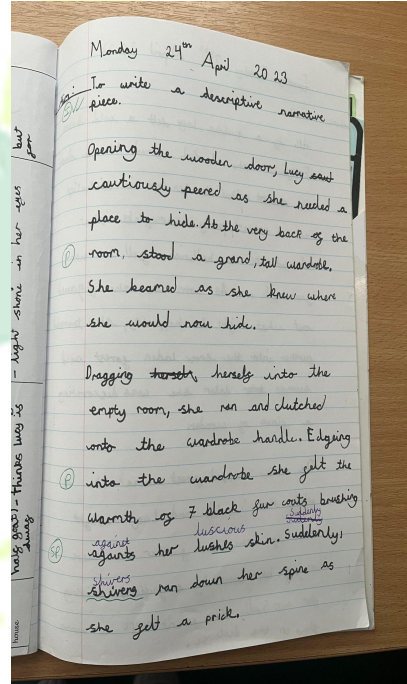 Monday 24th April 2023
To write a descriptive narrative
piece.
Opening the wooden door, Lucy
cautiously peered as she needed a
place to hide. At the very back of the
P room, stood a grand, tall wardrobe.
She beamed as she knew where
she would now hide.
Dragging herself, herself into the
empty room, she ran and clutched
onto the wardrobe handle. Edgeing
P into the wardrobe she felt the
warmth of 7 black fur coats brushing
against luscious Suddenly
sp againts her lushes skin. Suddenly,
Shivers
shivers ran down her spine as
she felt a prick.
but
- light shone in her eyes
half goat! - thinks lucy is
house